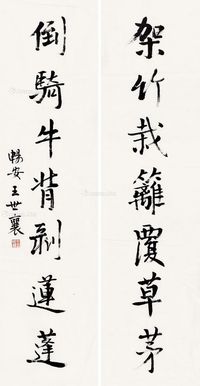 架竹栽籬覆草茅
倒騎牛背剥蓮蓬
暢安王世襄